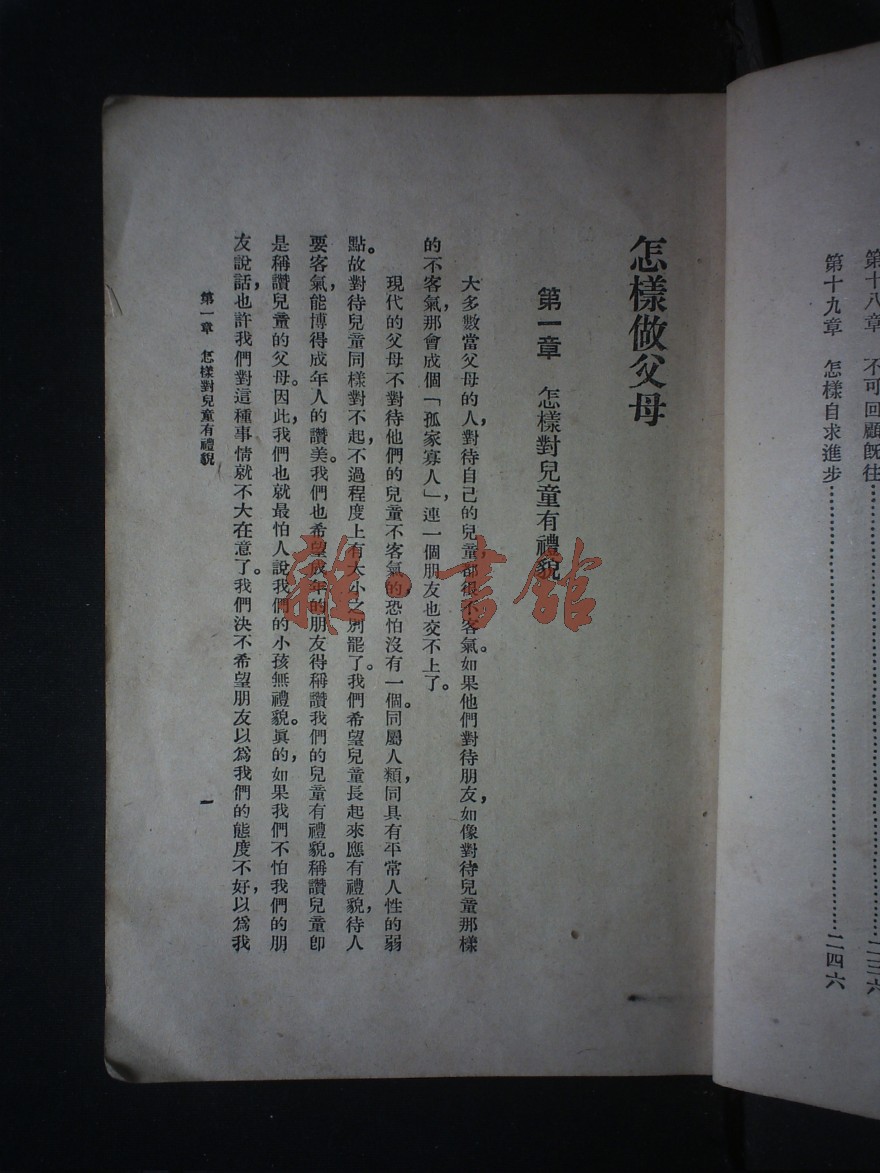 第十八章　不可回顧既往………………二三六
第十九章　怎樣自求進步………………二四六
怎樣做父母
第一章　怎樣對兒童有禮貌
大多數當父母的人，對待自己的兒童，都很不客氣。如果他們對待朋友，如像對待兒童那樣
的不客氣，那會成個「孤家寡人」，連一個朋友也交不上了。
現代的父母不對待他們的兒童不客氣的，恐怕沒有一個。同屬人類，同具有平常人性的弱
點。故對待兒童同樣對不起，不過程度上有大小之別罷了。我們希望兒童長起來應有禮貌，待人
要客氣，能博得成年人的讚美。我們也希望成年的朋友得稱讚我們的兒童有禮貌。稱讚兒童卽
是稱讚兒童的父母。因此，我們也就最怕人說我們的小孩無禮貌。眞的，如果我們不怕我們的朋
友說話，也許我們對這種事情就不大在意了。我們決不希望朋友以爲我們的態度不好，以爲我
第一章　怎樣對兒童有禮貌
一
雜·書館